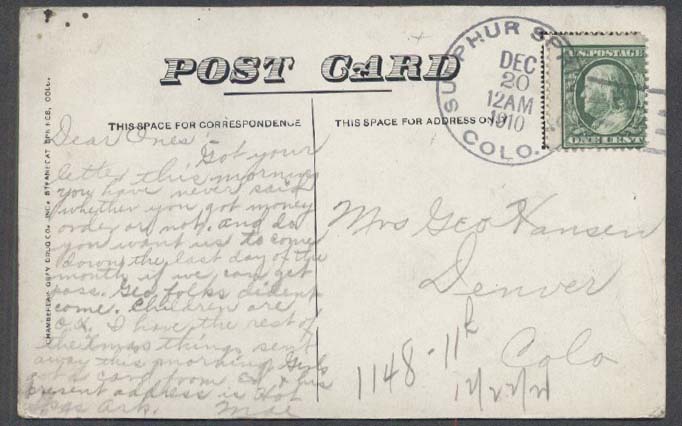 POST CARD
THIS SPACE FOR CORRESPONDENCE
THIS SPACE FOR ADDRESS ONLY
SULPHUR SP
DEC
20
12AM
1910
COLO.
U.S. POSTAGE
ONE CENT
CHAMBERLAIN GRAY DRUG CO., INC., STEAMBOAT SPRINGS, COLO.
Dear Ones!
Got your
letter this morning
you have never said
whether you got money
order or not. and do
you want us to come
down the last day of the
month if we can get
pass. Geo folks dident
come. Children are
O.K. I have the rest of
the Xmas things sent
away this morning. Girls
got a card from his
present address is Hot
Spgs Ark. Mae
Mrs Geo Hansen
Denver
Colo
1148-11th